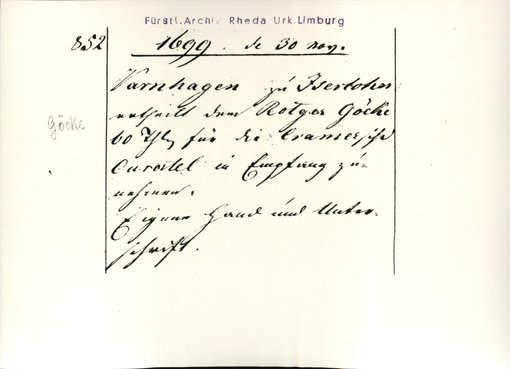 Fürstl. Archiv Rheda Urk. Limburg
852 1699. de 30 nov.
Varnhagen zu Iserlohn
ertheilt dem Rötger Göcke
Göcke
60 Thl für die Cramersche
Curatel in Empfang zu-
nehmen.
Eigene Hand und Unter-
schrift.